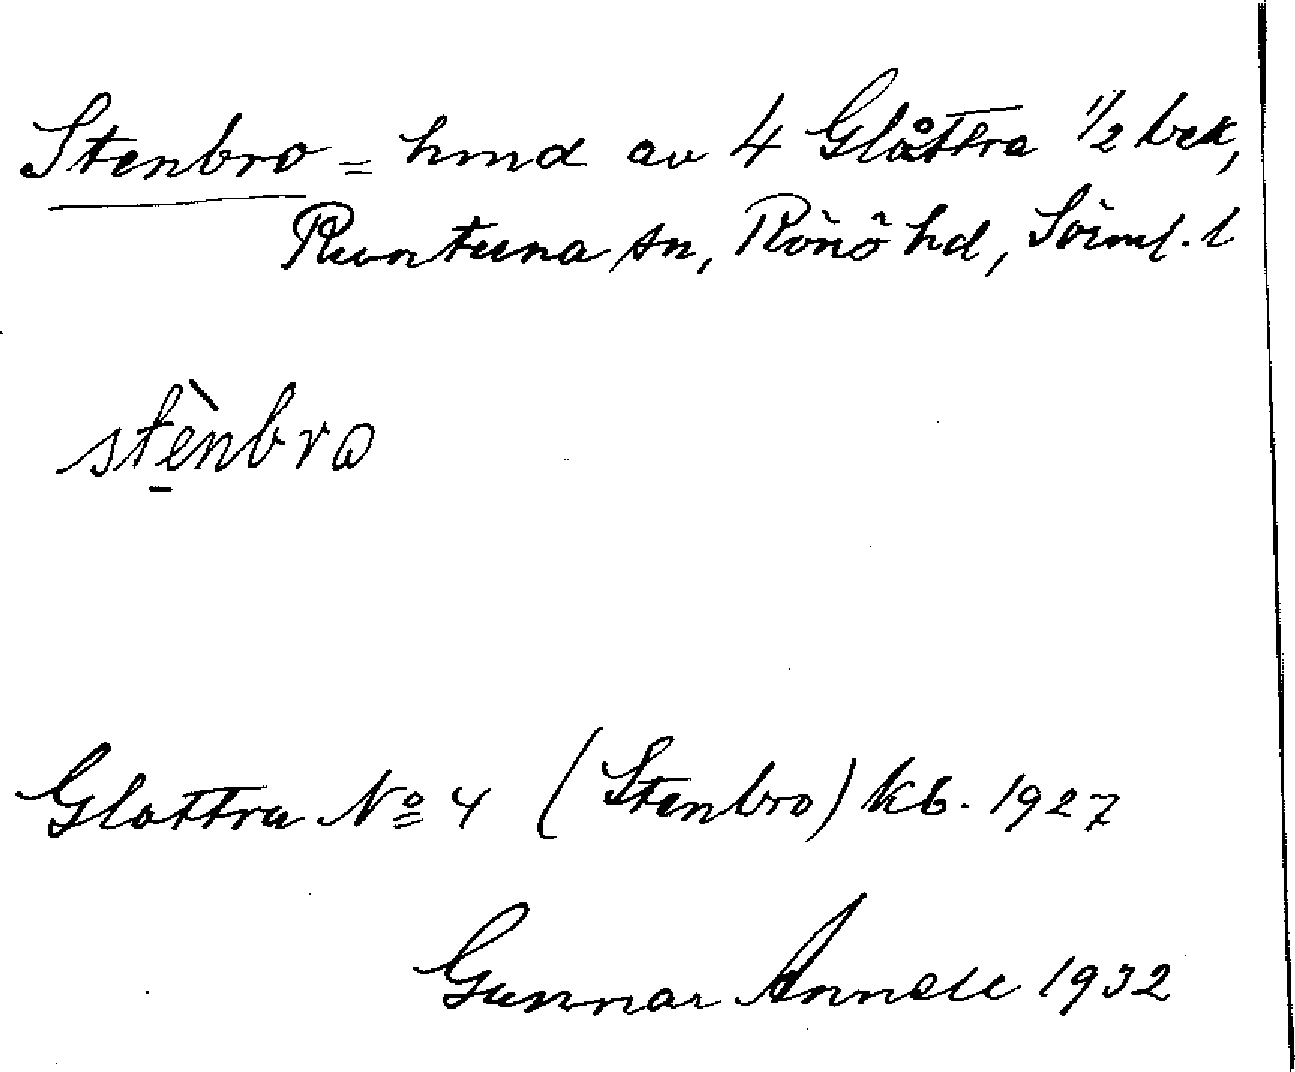 Stenbro = hmd av 4 Glåttra 1/2 bek,
Runtuna sn, Rönö hd, Sörml. l
stènbro
Glottra No 4 (Stenbro) kb. 1927
Gunnar Annell 1932